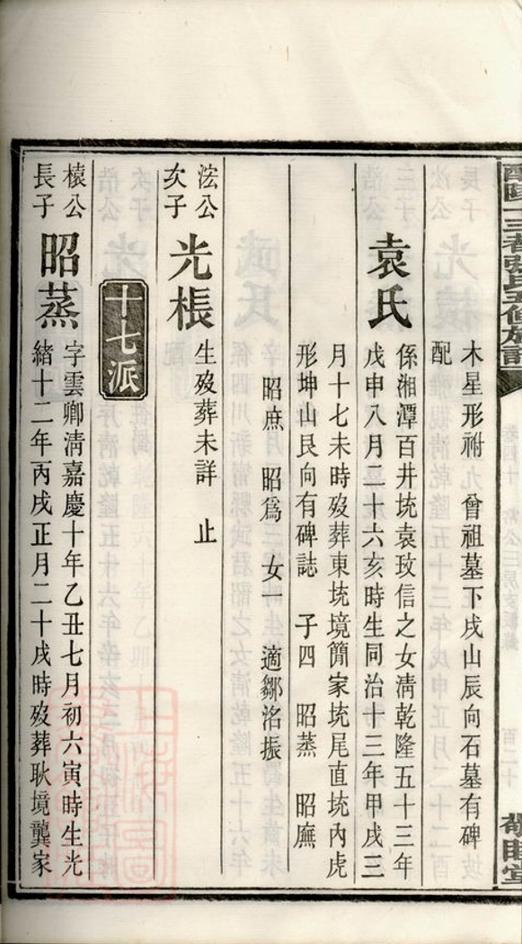 木星形祔 曾祖墓下戌山辰向石墓有碑
配
袁氏
係湘潭百井坑袁玫信之女淸乾隆五十三年
戊申八月二十六亥時生同治十三年甲戌三
月十七未時歿葬東坑境簡家坑尾直坑內虎
形坤山艮向有碑誌 子四 昭蒸 昭廡
昭庶 昭爲 女一 適鄒洺振
浤公
次子
光棖
生歿葬未詳 止
十七派
榱公
長子
昭蒸
字雲卿淸嘉慶十年乙丑七月初六寅時生光
緒十二年丙戌正月二十戌時歿葬耿境龔家